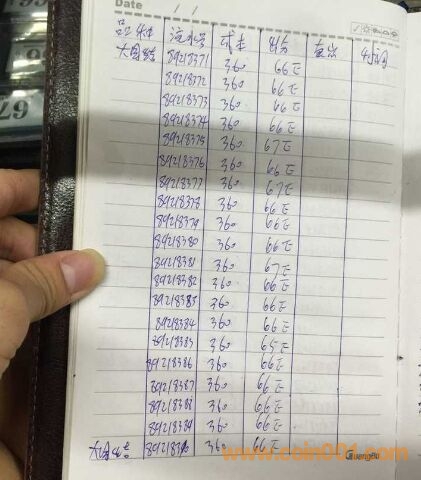 Date / /
品种 流水号 成本 时间
89218371 360 66正
89218372 360 66正
89218373 360 66正
89218374 360 66正
89218375 360 67正
89218376 360 66正
89218377 360 67正
89218378 360 66正
89218379 360 66正
89218380 360 66正
89218381 360 67正
89218382 360 66正
89218383 360 66正
89218384 360 66正
89218385 360 65正
89218386 360 66正
89218387 360 66正
89218388 360 66正
89218389 360 66正
89218390 360 66正
www.coin001.com
GuangBo